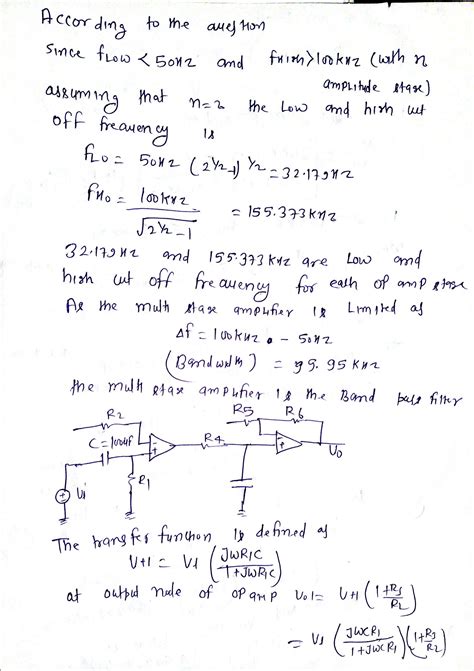 According to the question
since fLow < 50Hz and fHigh > 100kHz (with n
amplitude stage)
assuming that n=2 the Low and high cut
off frequency is
fLo = 50Hz (2^1/2 -1)^1/2 = 32.179Hz
fHo = 100kHz / √(2^1/2 -1) = 155.373kHz
32.179Hz and 155.373kHz are Low and
high cut off frequency for each op amp stage
As the multi stage amplifier is Limited as
Δf = 100kHz - 50Hz
(Bandwidth) = 99.95kHz
the multi stage amplifier is the Band pass filter
R2 R5 R6
C=100uf R4
R1 Vo
Vi
The transfer function is defined as
V+1 = Vs (JWR1C / 1+JWR1C)
at output node of op amp Vo1 = V+1 (1+R3/R2)
= Vs (JWCR1 / 1+JWCR1) (1+R3/R2)